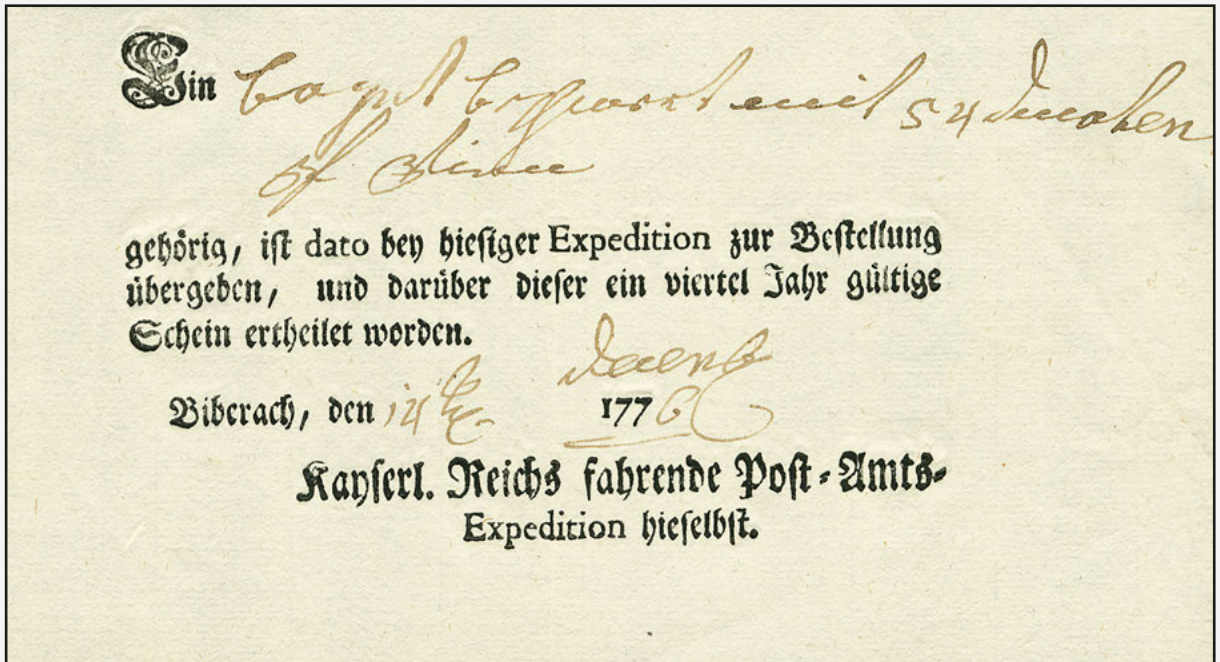 Ein mit 54 Ducaten
gehörig, ist dato bey hiesiger Expedition zur Bestellung
übergeben, und darüber dieser ein viertel Jahr gültige
Schein ertheilet worden.
Biberach, den 14 1776
Kayserl. Reichs fahrende Post-Amts-
Expedition hieselbst.